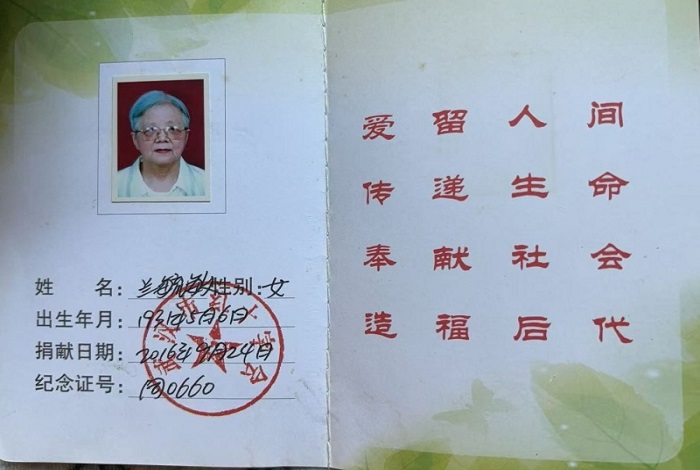 姓 名：兰 性别：女
出生年月：1931年5月6日
捐献日期：2016年9月24日
纪念证号：同0660
爱留人间
传递生命
奉献社会
造福后代